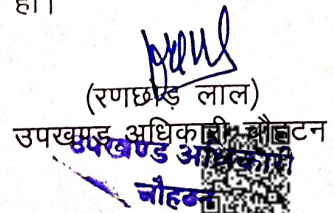 हो।
(रणछोड़ लाल)
उपखण्ड अधिकारी चौहटन
उपखण्ड अधिकारी
चौहटन